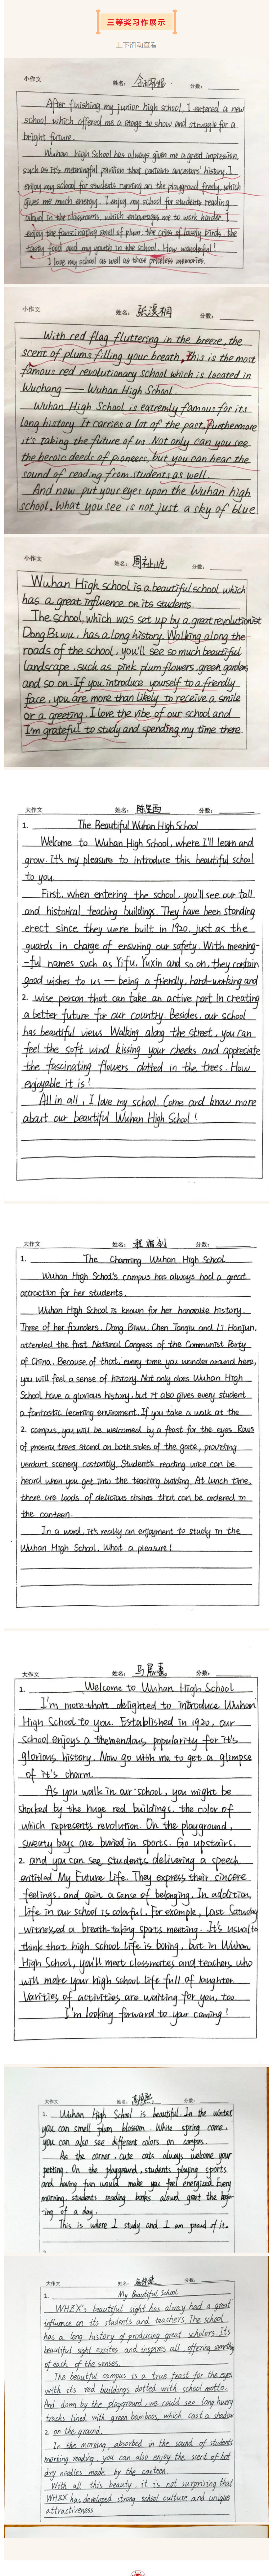 三等奖习作展示
上下滑动查看
小作文 姓名: 分数:
After finishing my junior high school, I entered a new
school which offered me a stage to show and struggle for a
bright future.
Wuhan high School has always given me a great impression,
such as it's meaningful pavilion that contains ancestors' history. I
enjoy my school for students running on the playground freely, which
gives me much energy. I enjoy my school for students reading
aloud in the classrooms, which encourages me to work harder. I
enjoy the fanscinating smell of plum, the cries of lovely birds, the
tasty food and my youth in the school. How wonderful!
I love my school as well as that priceless memories.
小作文 姓名: 分数:
With red flag fluttering in the breeze, the
scent of plums filling your breath, This is the most
famous red revolutionary school which is located in
Wuchang — Wuhan High School.
Wuhan High School is extremly famous for its
long history. It carries a lot of the past. Furthermore
it's taking the future of us. Not only can you see
the heroic deeds of pioneers, but you can hear the
sound of reading from students as well.
And now, put your eyes upon the Wuhan high
school, What you see is not just a sky of blue
小作文 姓名: 周祉屹 分数:
Wuhan High school is a beautiful school which
has a great influence on its students.
The school, which was set up by a great revolutionist
Dong Biwu, has a long history. Walking along the
roads of the school, you'll see so much beautiful
landscape, such as pink plum flowers, green gardens,
and so on. If you introduce youself to a friendly
face, you are more than likely to receive a smile
or a greeting. I love the vibe of our school and
I'm grateful to study and spending my time there.
大作文 姓名: 分数:
1. The Beautiful Wuhan High School
Welcome to Wuhan High School, where I'll learn and
grow. It's my pleasure to introduce this beautiful school
to you.
First, when entering the school, you'll see our tall
and historical teaching buildings. They have been standing
erect since they were built in 1920, just as the
guards in charge of ensuring our safety. With meaning-
ful names such as Yifu, Yuxin and so on, they contain
good wishes to us — being a friendly, hard-working and
2. wise person that can take an active part in creating
a better future for our country. Besides, our school
has beautiful views. Walking along the street, you can
feel the soft wind kissing your cheeks and appreciate
the fascinating flowers dotted in the trees. How
enjoyable it is!
All in all, I love my school. Come and know more
about our beautiful Wuhan High School!
大作文 姓名: 分数:
1. The Charming Wuhan High School
Wuhan High School's campus has always had a great
attraction for her students.
Wuhan High School is known for her honorable history.
Three of her founders, Dong Biwu, Chen Tanqiu and Li Hanjun,
attended the first National Congress of the Communist Party
of China. Because of that, every time you wonder around here,
you will feel a sense of history. Not only does Wuhan High
School have a glorious history, but it also gives every student
a fantastic learning environment. If you take a walk at the
2. campus, you will be welcomed by a feast for the eyes. Rows
of phoenix trees stand on both sides of the gate, providing
verdant scenery constantly. Student's reading voice can be
heard when you get into the teaching building. At lunch time,
there are loads of delicious dishes that can be ordered in
the canteen.
In a word, it's really an enjoyment to study in the
Wuhan High School. What a pleasure!
大作文 姓名: 分数:
1. Welcome to Wuhan High School
I'm more than delighted to introduce Wuhan
High School to you. Established in 1920, our
school enjoys a themendous popularity for it's
glorious history. Now go with me to get a glimpse
of it's charm.
As you walk in our school, you might be
shocked by the huge red buildings, the color of
which represents revolution. On the playground,
sweaty boys are buried in sports. Go upstairs,
2. and you can see students delivering a speech
entitled My Future Life. They express their sincere
feelings, and gain a sense of belonging. In addition,
life in our school is colorful. For example, last Saturday
witnessed a breath-taking sports meeting. It's usual to
think that high school life is boring, but in Wuhan
High School, you'll meet classmates and teachers who
will make your high school life full of laughter.
Varities of activities are waiting for you, too.
I'm looking forward to your coming!
大作文 姓名: 分数:
1. Wuhan High School is beautiful. In the winter
you can smell plum blossom. While spring come,
you can also see different colors on campus.
At the corner, cute cats always welcome your
petting. On the playground, students playing sports
and having fun would make you feel energized. Every
morning, students reading books aloud greet the begin-
ing of a day.
This is where I study and I am proud of it.
大作文 姓名: 分数:
1. My Beautiful School
WHZX's beautiful sight has alway had a great
influence on its students and teachers. The school
has a long history of producing great scholars. Its
beautiful sight excites and inspires all, offering something
of each of the senses.
The beautiful campus is a true feast for the eyes
with its red buildings dotted with school motto.
And down by the playground, we could see long
tracks lined with green bamboos, which cast a shadow
2. on the ground.
In the morning, absorbed in the sound of students
morning reading, you can also enjoy the scent of hot
dry noodles made by the canteen.
With all this beauty, it is not surprising that
WHZX has developed strong school culture and unique
attractiveness